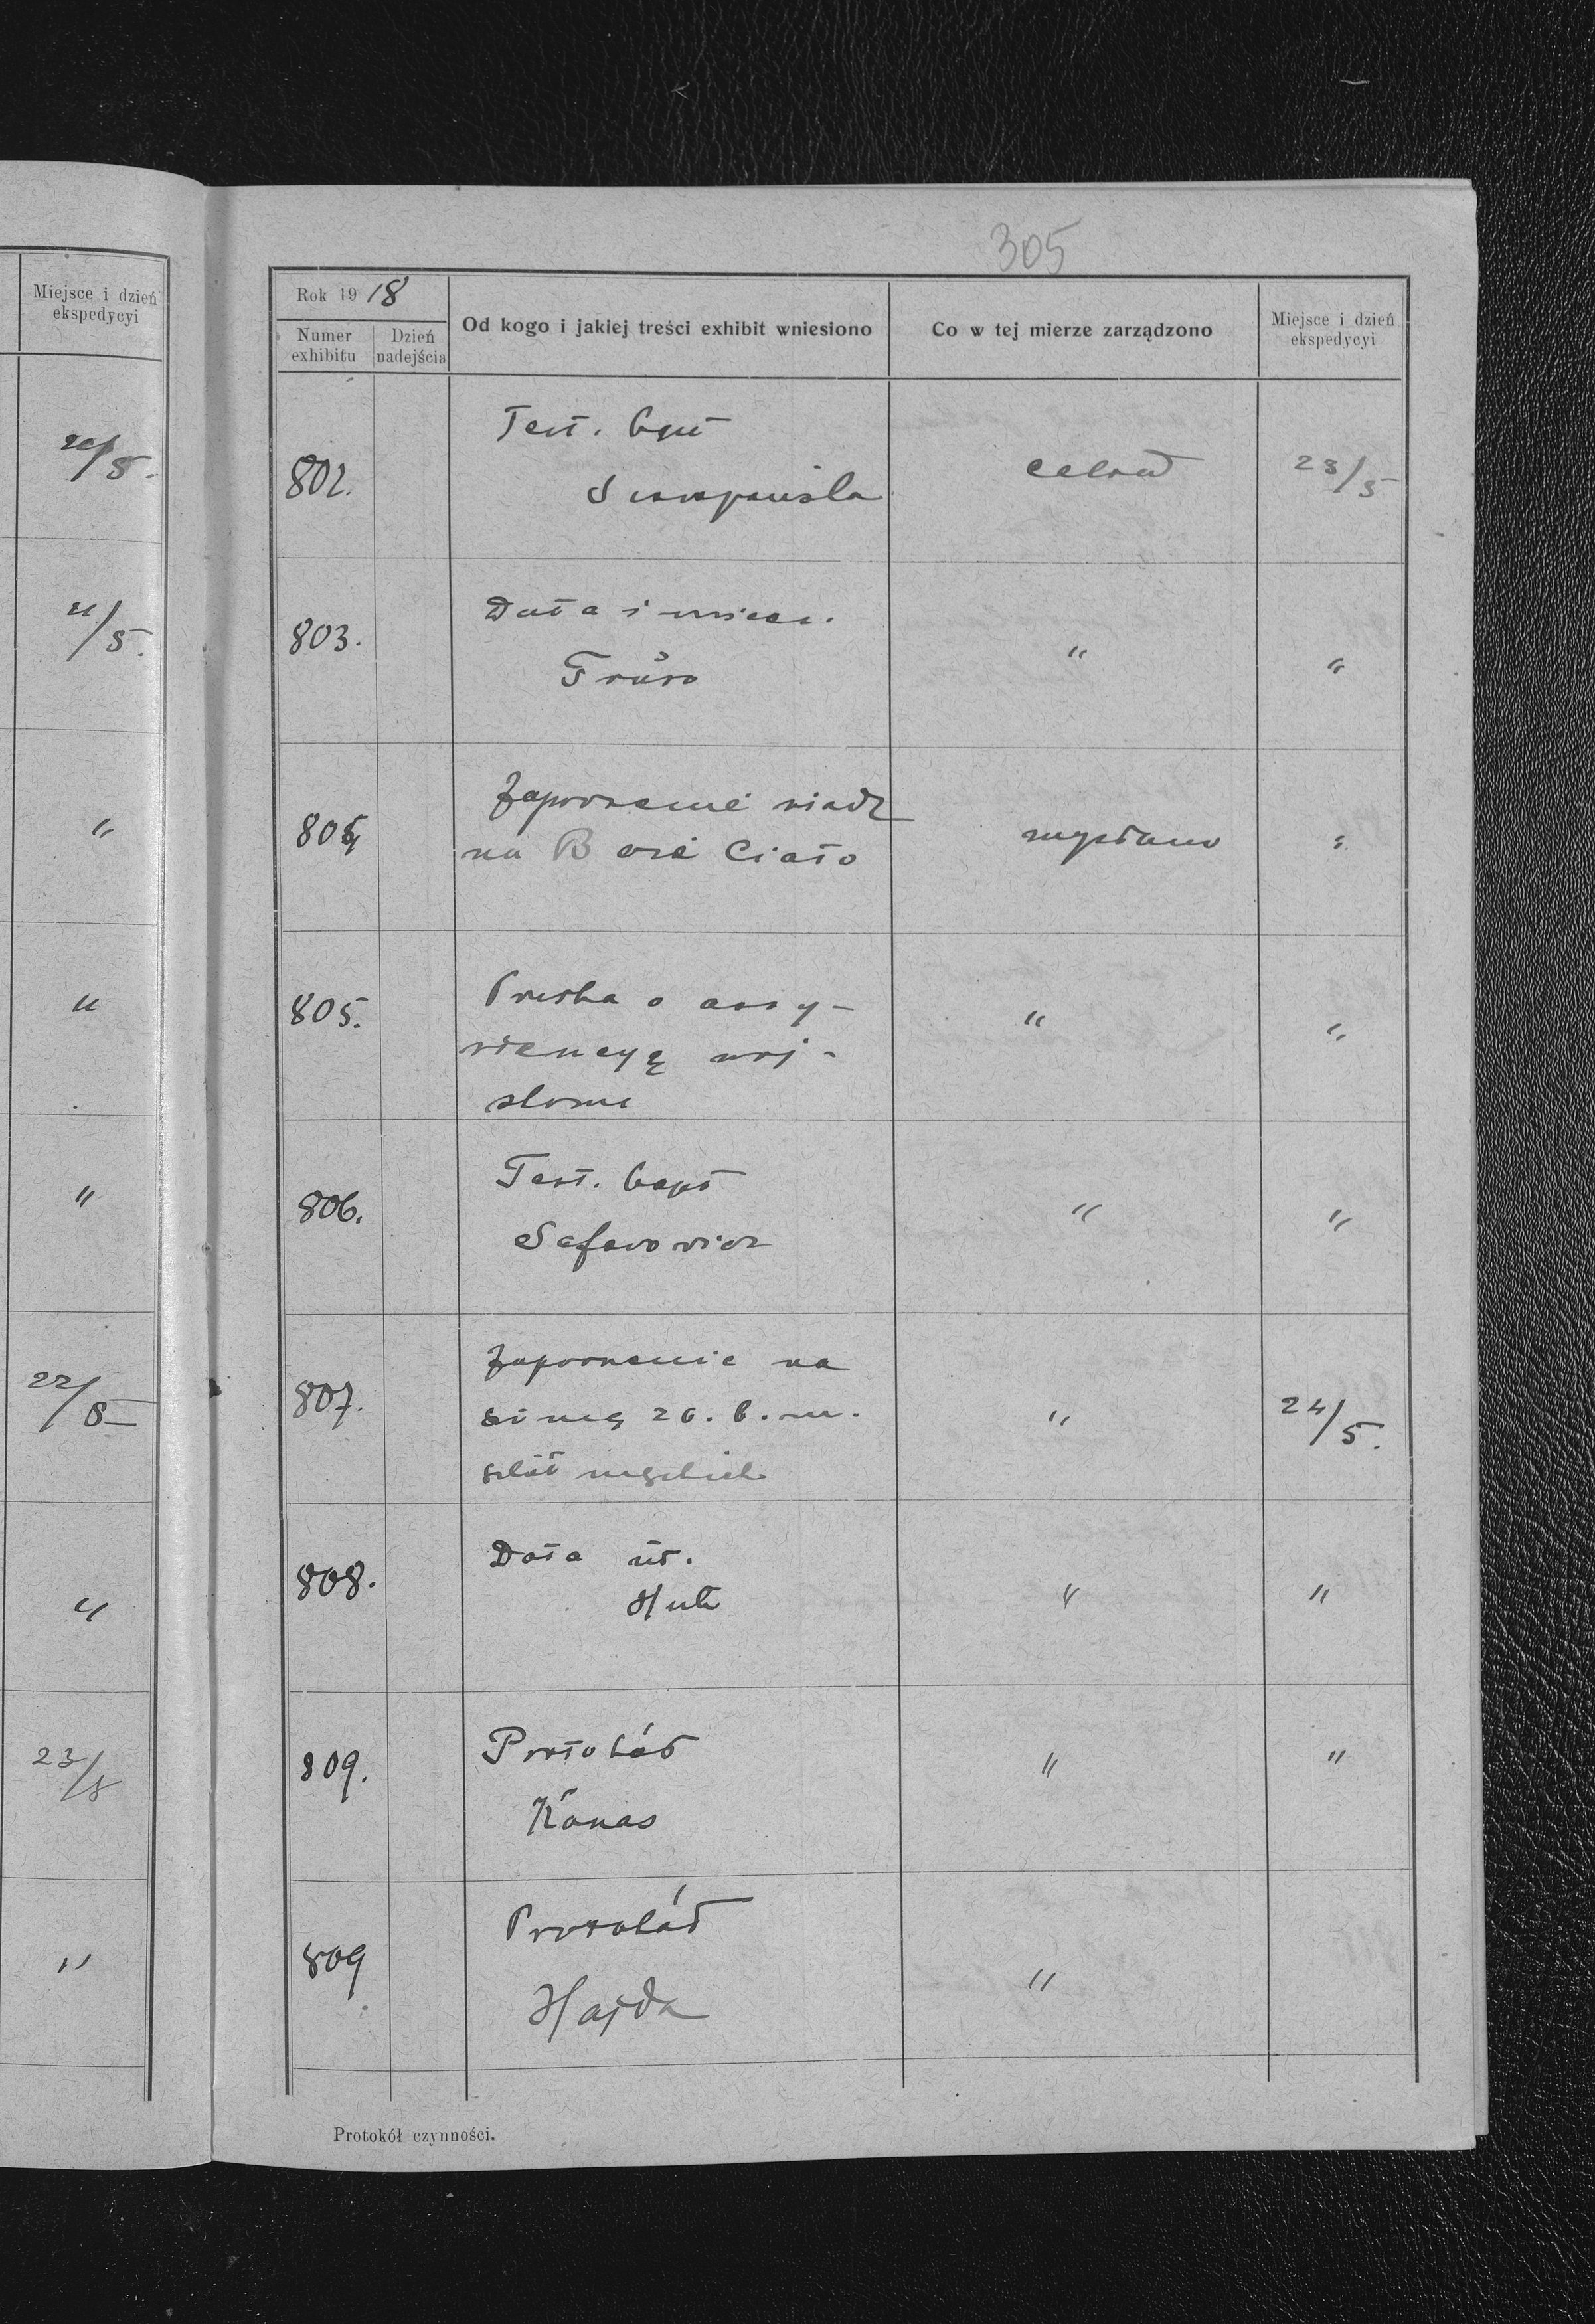 Miejsce i dzień
ekspedycyi
20/5.
21/5.
"
"
"
22/5
"
23/5
"
305
Rok 1918
Numer
exhibitu
Dzień
nadejścia
Od kogo i jakiej treści exhibit wniesiono
Co w tej mierze zarządzono
Miejsce i dzień
ekspedycyi
802.
Test. bapt
23/5
803.
Data i
"
"
804
Zaproszenie władz
na Boże Ciało
wysłano
"
805.
Prośba o assy-
stencyę woj-
skową
"
"
806.
Test. bapt
Saferowicz
"
"
807.
Zaproszenie na
26. b. m.
szkół męskich
"
24/5.
808.
Data ur.
Huk
"
"
809.
Protokół
Kanas
"
"
809
Protokół
Hajda
"
Protokół czynności.